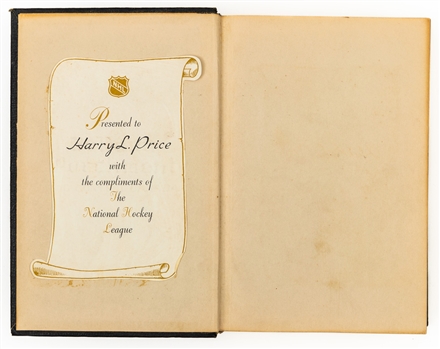 NHL
Presented to
Harry L. Price
with
the compliments of
The
National Hockey
League